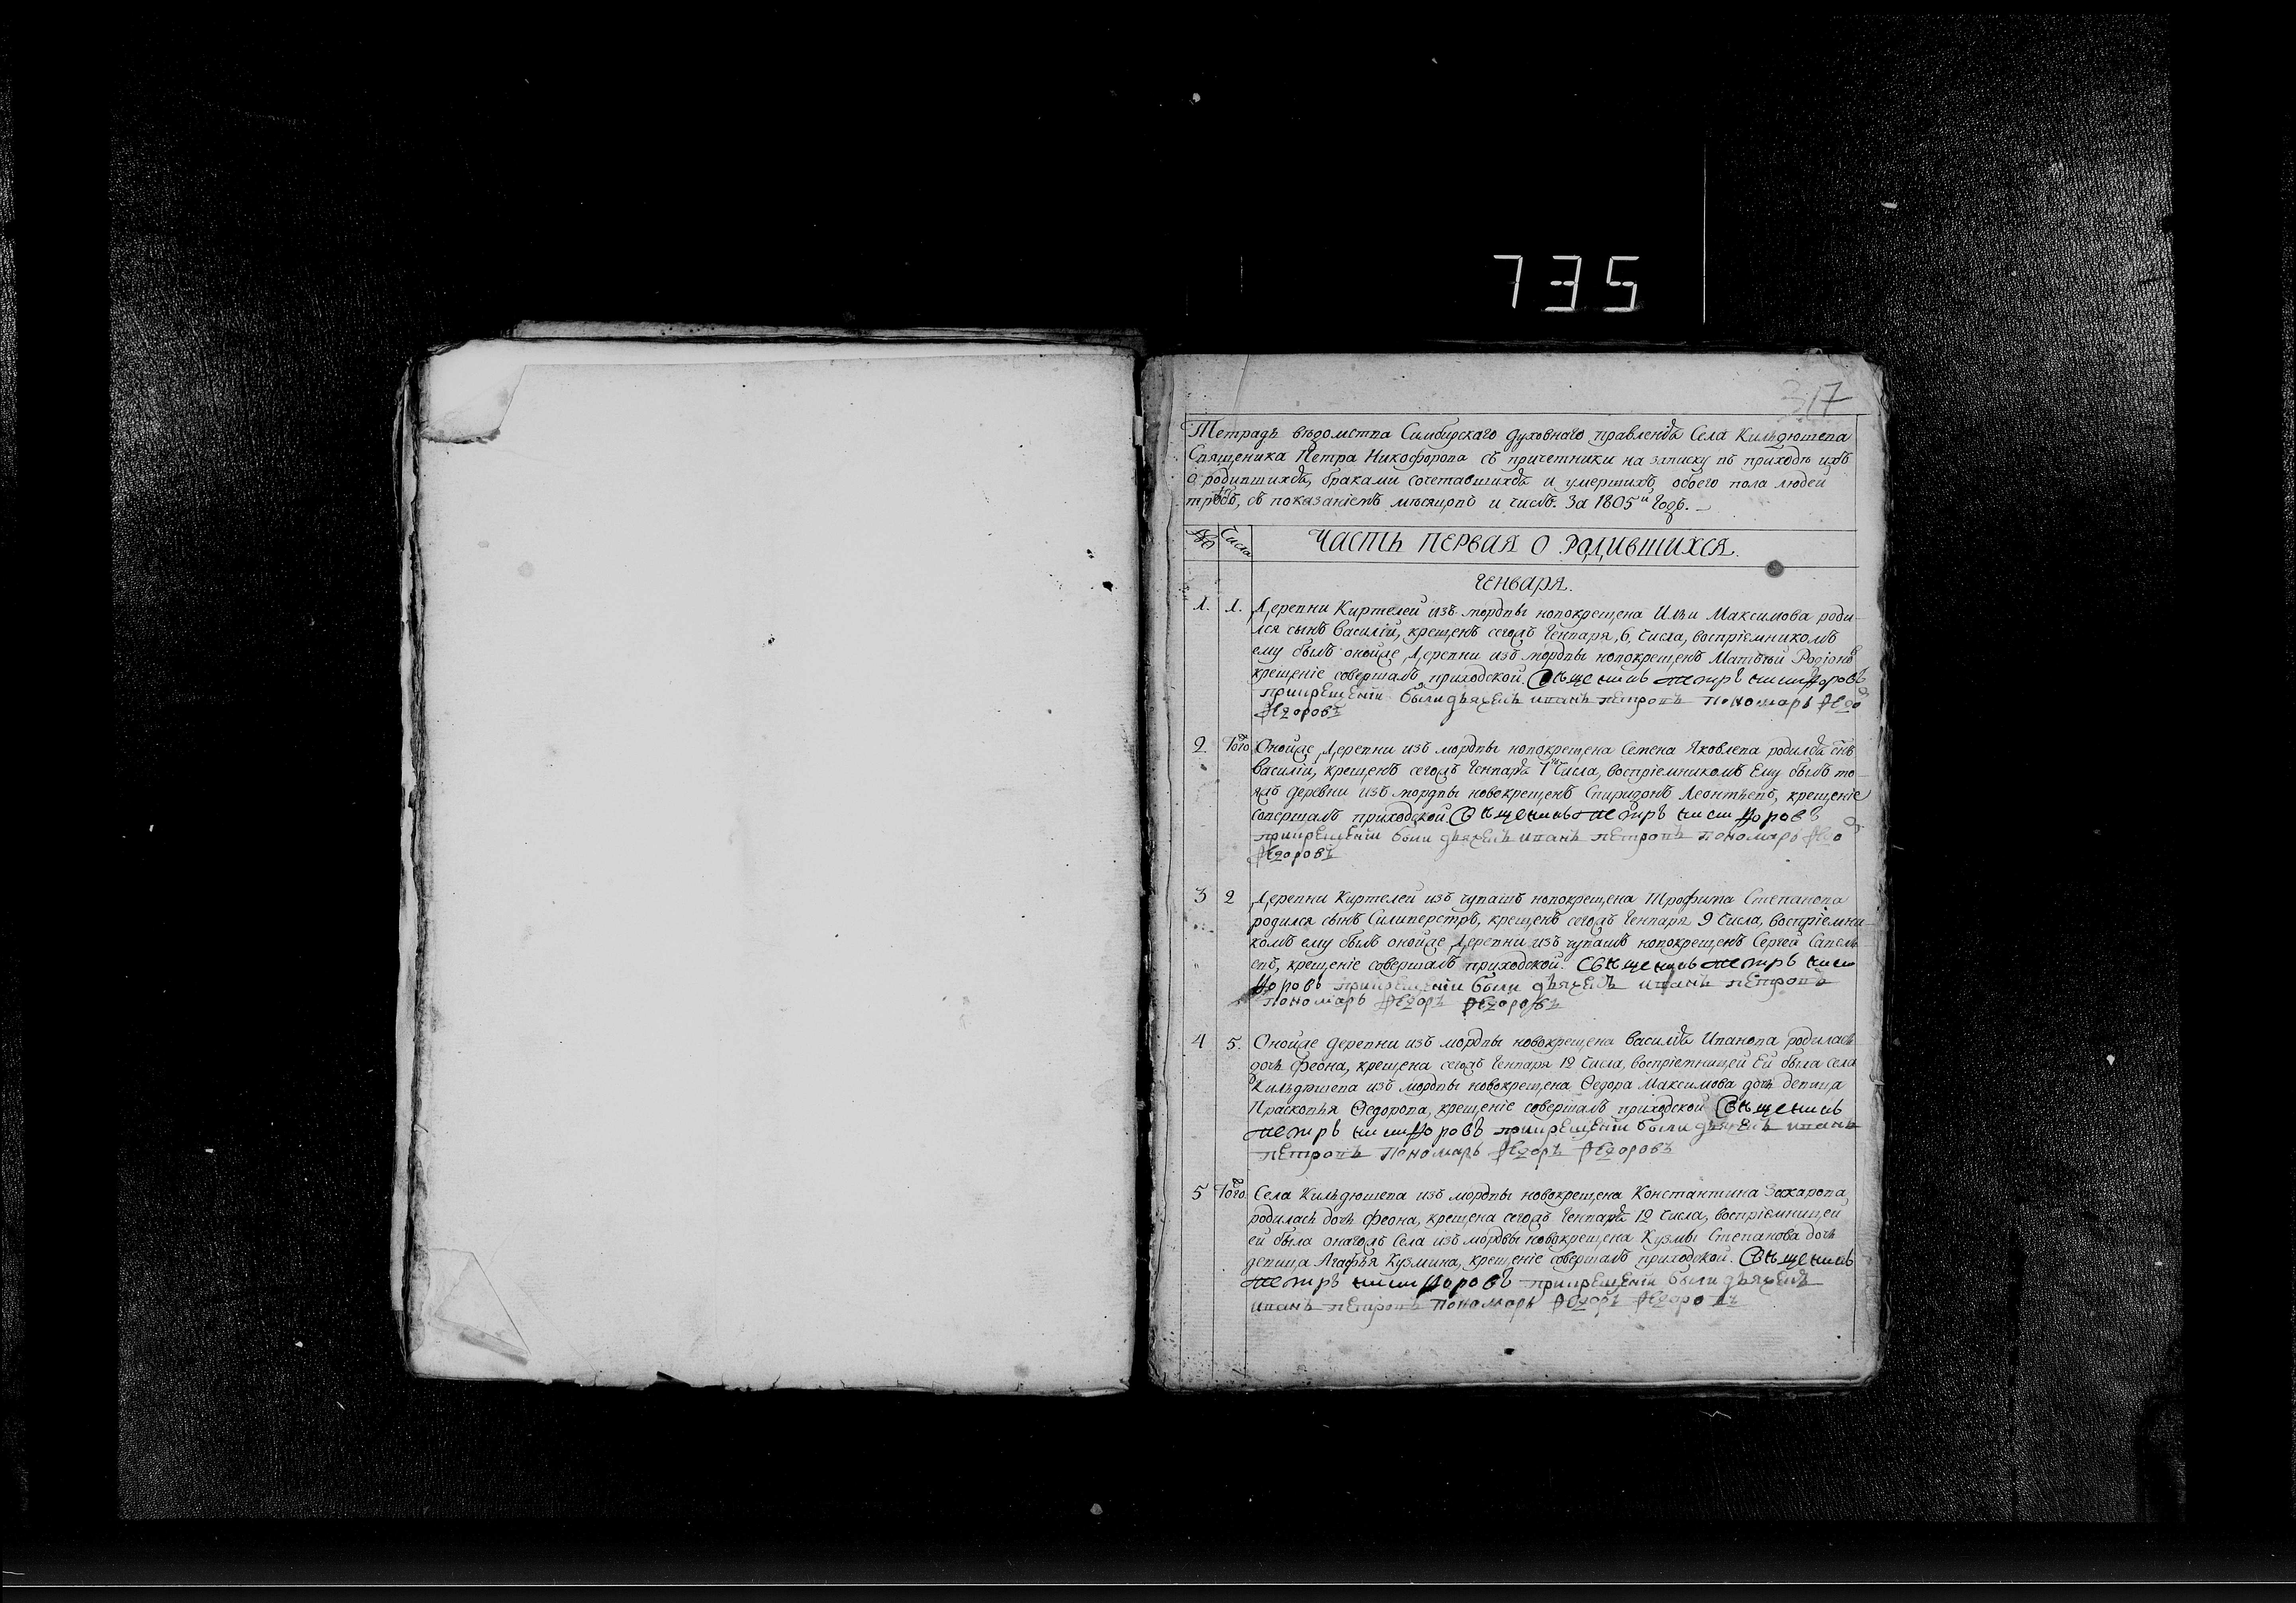 735
317
Тетрадь вѣдомства Симбирскаго духовнаго правленія Села Кильдюшева
Священика Петра Никофорова съ причетники на записку въ приходѣ ихъ
о родившихся, браками сочетавшихся и умершихъ обоего пола людей
съ показаніемъ мѣсяцовъ и числъ. За 1805й Годъ.
№ Числа ЧАСТЬ ПЕРВАЯ О РОДИВШИХСЯ.
Генваря.
1. 1. Деревни Киртелей изъ мордвы новокрещена Ильи Максимова роди-
лся сынъ Василій, крещенъ сегожъ Генваря, 6, числа, воспріемникомъ
ему былъ оной же Деревни изъ мордвы новокрещенъ Матвѣй Родіоновъ
крещеніе совершалъ приходской. Свещеникъ петръ никифоровъ
прикрещеніи были дьячекъ иванъ петровъ пономарь Федоръ
Федоровъ
2. Того Оной же Деревни изъ мордвы новокрещена Семена Яковлева родился снъ
Василій, крещенъ сегожъ Генваря 7 числа, воспріемникомъ Ему былъ то-
яжъ деревни изъ мордвы новокрещенъ Спиридонъ Леонтьевъ, крещеніе
совершалъ приходской. Свещеникъ петръ никифоровъ
прикрещеніи были дьячекъ иванъ петровъ пономарь Федоръ
Федоровъ
3 2 Деревни Киртелей изъ чувашъ новокрещена Трофима Степанова
родился сынъ Силиверстръ, крещенъ сегожъ Генваря 9 числа, воспріемни-
комъ ему былъ оной же Деревни изъ чувашъ новокрещенъ Сергей Савель-
евъ, крещеніе совершалъ приходской. Свещеникъ петръ ники
форовъ прикрещеніи были дьячекъ иванъ петровъ
пономарь Федоръ Федоровъ
4 5. Оной же деревни изъ мордвы новокрещена Василья Иванова родилась
дочь Феона, крещена сегожъ Генваря 12 числа, воспріемницей Ей была села
Кильдюшева изъ мордвы новокрещена Ѳедора Максимова дочь девица
Прасковья Ѳедорова, крещеніе совершалъ приходской Свещеникъ
петръ никифоровъ прикрещеніи были дьячекъ иванъ
петровъ пономарь Федоръ Федоровъ
5 Того Села Кильдюшева изъ мордвы новокрещена Константина Захарова,
родилась дочь Феона, крещена сегожъ Генваря 12 числа, воспріемницей
ей была онагожъ Села изъ мордвы новокрещена Кузмы Степанова дочь
девица Агафья Кузмина, крещеніе совершалъ приходской. Свещеникъ
петръ никифоровъ прикрещеніи были дьячекъ
иванъ петровъ пономарь Федоръ Федоровъ